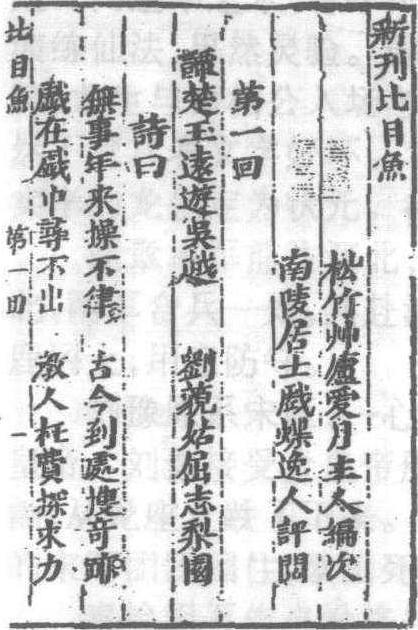 新刊比目魚
松竹艸廬愛月主人編次
南陵居士戲蝶逸人評閱
第一回
譚楚玉遠遊吳越 劉藐姑屈志梨園
詩曰
無事年來操不律 古今到處搜奇跡
戲在戲中尋不出 教人枉費探求力
比目魚 第一回 一